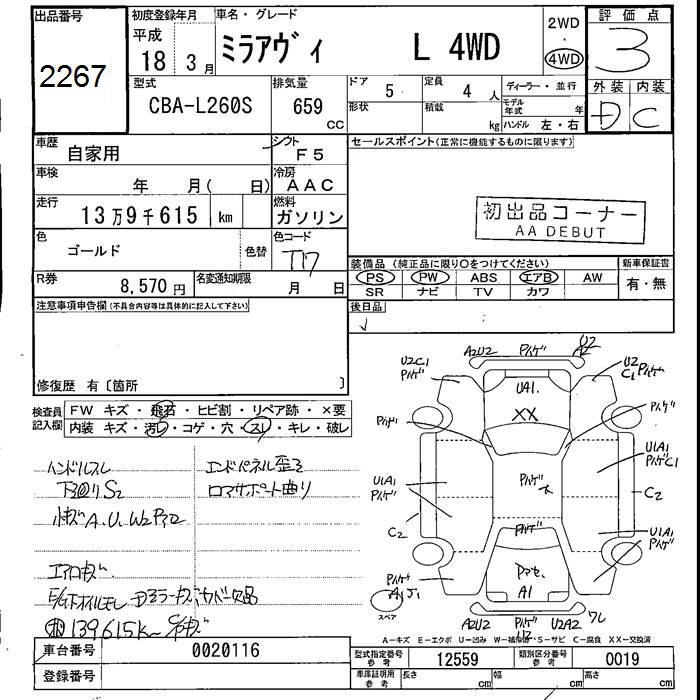 出品番号
2267
初度登録年月
平成
18 3月
車名・グレード
ミラアヴィ L 4WD
2WD
4WD
評価点
3
型式
CBA-L260S
排気量
659 CC
ドア
5
定員
4 人
形状
積載
kg
ディーラー・並行
モデル年式 年
ハンドル 左・右
外装 内装
D C
車歴
自家用
シフト
F5
車検
年 月( 日)
冷房
AAC
走行
13万9千615 km
燃料
ガソリン
色
ゴールド
色替
色コード
T17
R券
8,570 円
名変通知期限
月 日
セールスポイント(正常に機能するものに限ります)
初出品コーナー
AA DEBUT
装備品 (純正品に限り○をつけてください)
新車保証書
PS PW ABS エアB AW
SR ナビ TV カワ
有・無
後日品
注意事項申告欄(不具合内容等は具体的に記入して下さい)
修復歴 有〔箇所 〕
検査員記入欄
FW キズ・飛石・ヒビ割・リペア跡・×要
内装 キズ・汚れ・コゲ・穴・スレ・キレ・破し
ハンドルスレ
下回りS2
小キズA.U.W2P3コ
エアロキズ
エンドパネル歪ミ
ロアサポート曲り
139615K
A2U2
パハゲ
U2
A2
U2C1
パハゲ
U2
C1
パハゲ
UA1
XX
パハゲ
パハゲ
U1A1
パハゲ
パハゲ
U1A1
パハゲC1
C2
C2
パハゲ
U1A1
パハゲ
パハゲ
A1
A2U2
パハゲ
U2
U2A2
ワレ
スペア
A-キズ E-エクボ U-凹み W-補修跡 S-サビ C-腐食 XX-交換済
車台番号
0020116
登録番号
型式指定番号
参考
12559
類別区分番号
参考
0019
車庫証明用
参考
長さ cm
幅 cm
高さ cm